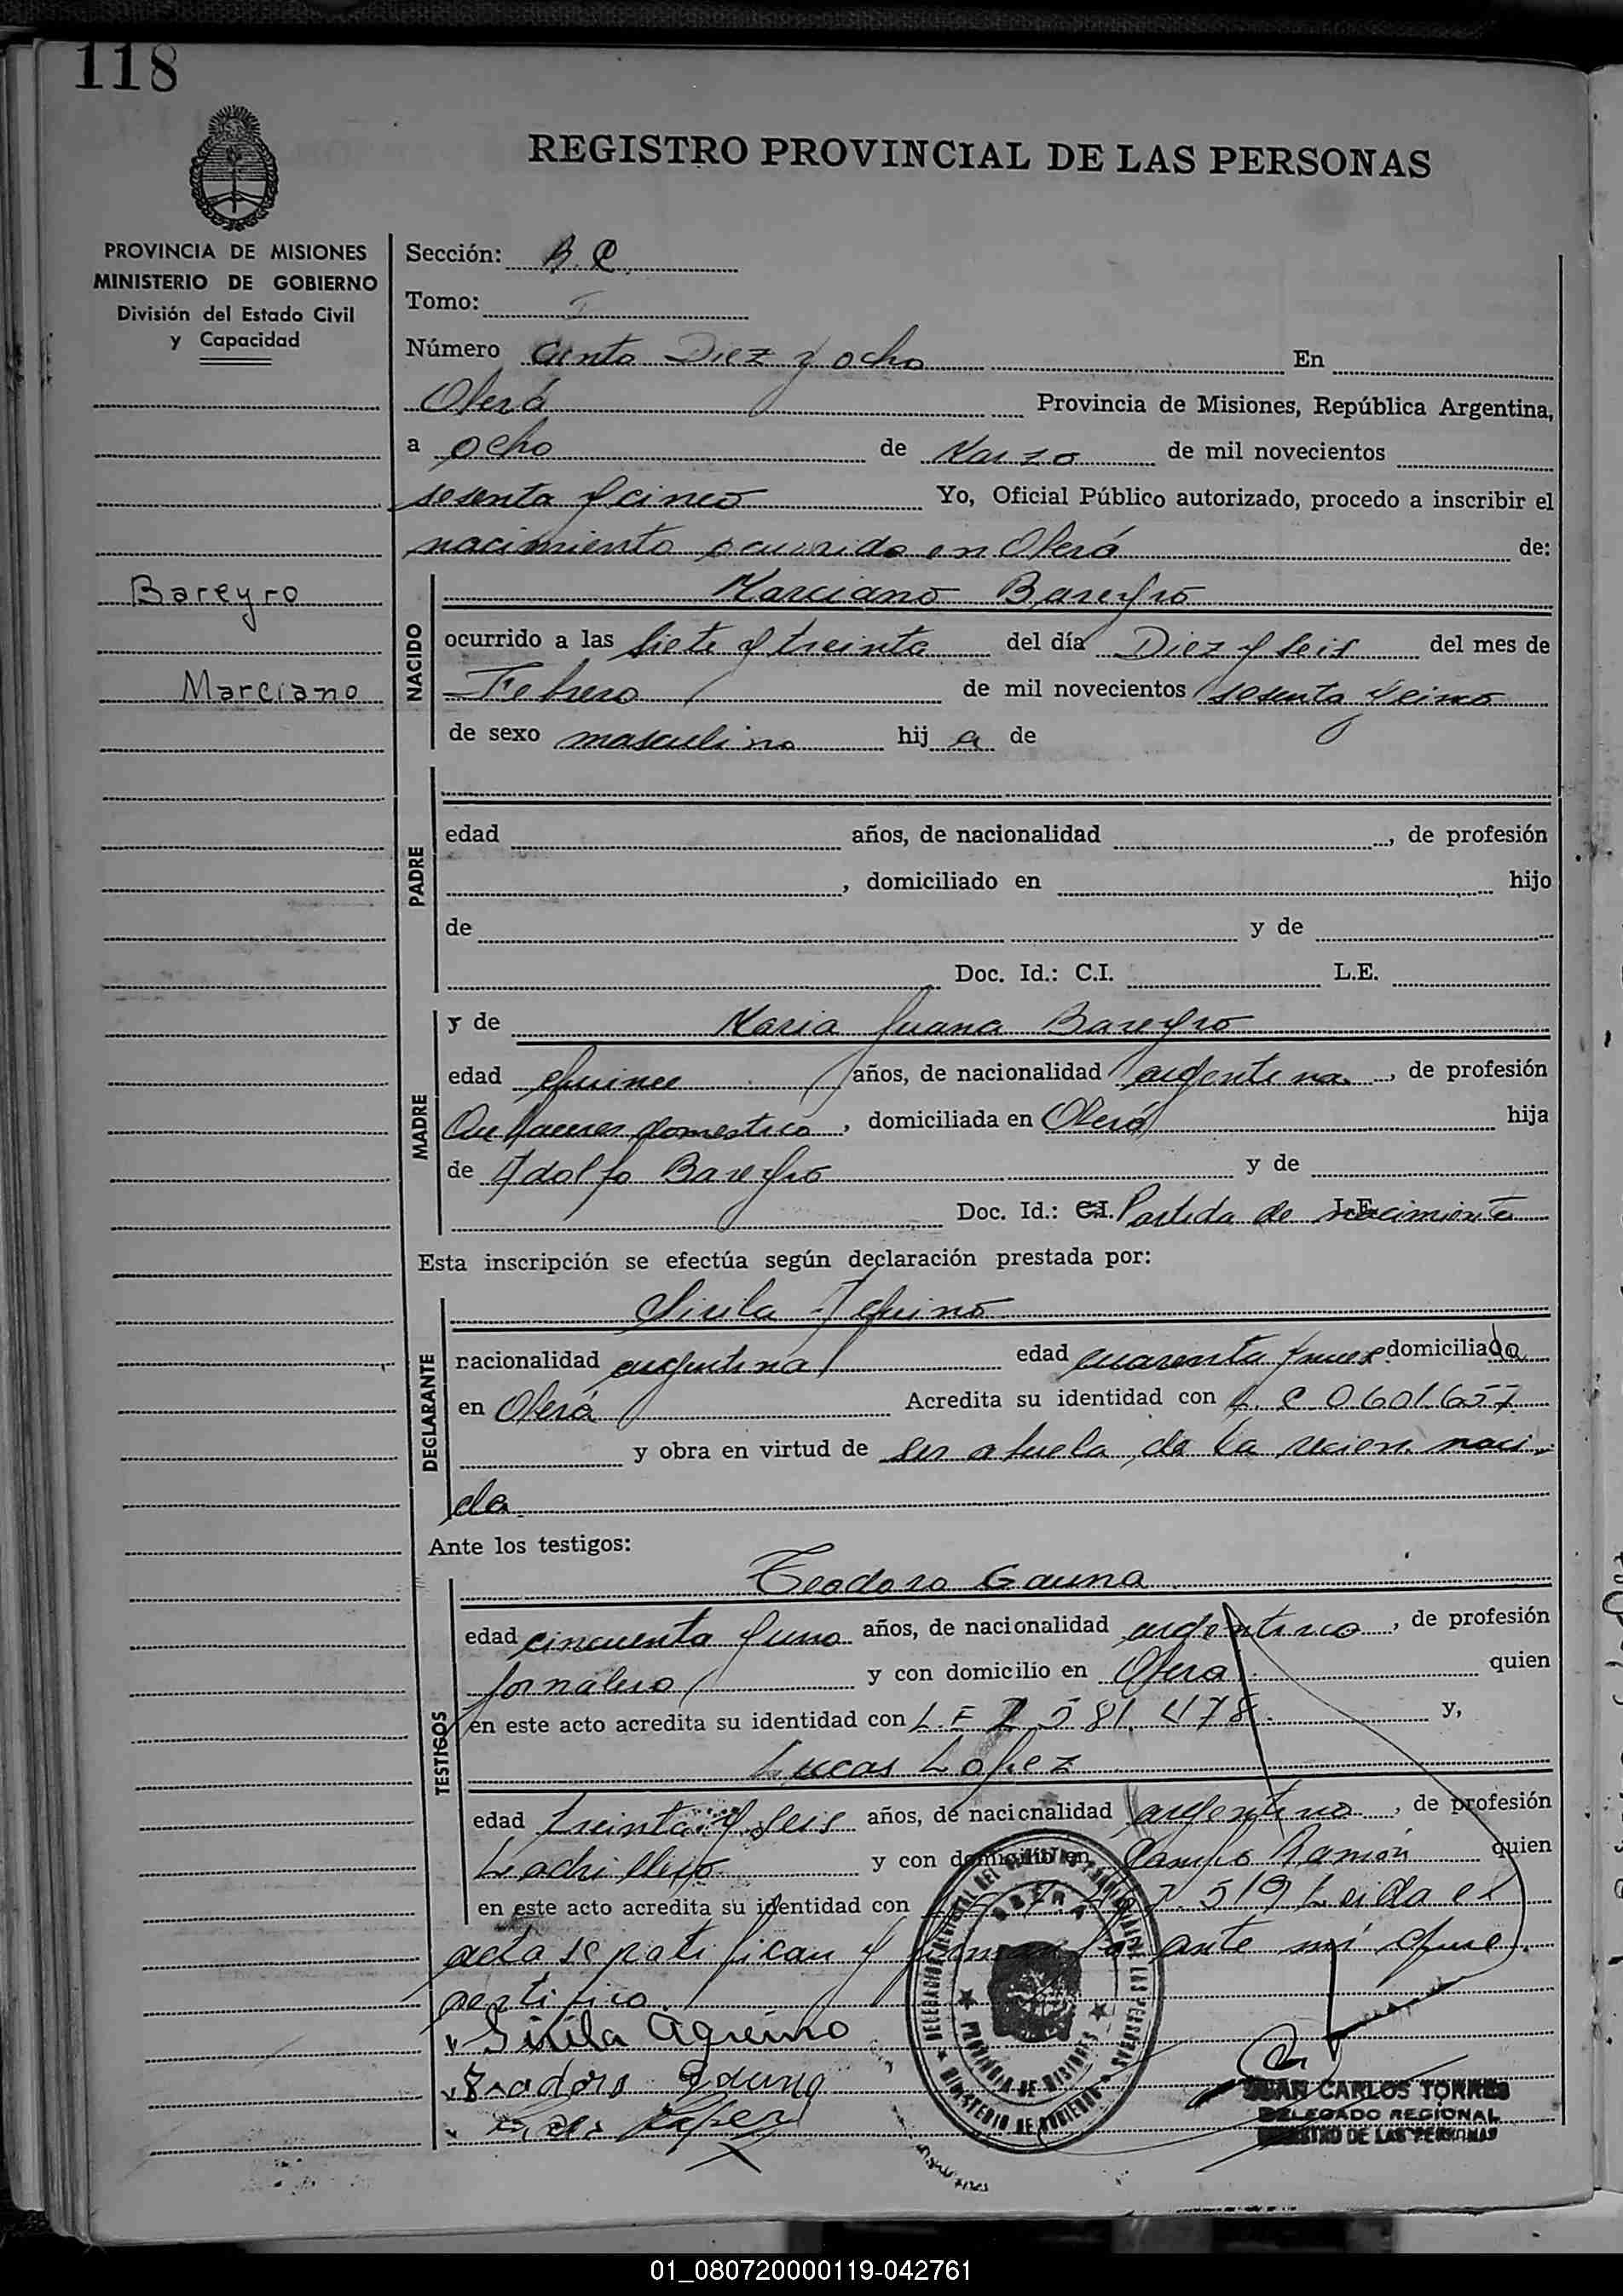 118
REGISTRO PROVINCIAL DE LAS PERSONAS
PROVINCIA DE MISIONES
MINISTERIO DE GOBIERNO
División del Estado Civil
y Capacidad
Sección: B. C.
Tomo: I
Número Ciento Diez y ocho En
Oberá Provincia de Misiones, República Argentina,
a ocho de Marzo de mil novecientos
sesenta y cinco Yo, Oficial Público autorizado, procedo a inscribir el
nacimiento ocurrido en Oberá de:
Bareyro
Marciano
NACIDO
Marciano Bareyro
ocurrido a las siete y treinta del día Diez y seis del mes de
Febrero de mil novecientos sesenta y cinco
de sexo masculino hij a de
PADRE
edad años, de nacionalidad , de profesión
, domiciliado en hijo
de y de
Doc. Id.: C.I. L.E.
MADRE
y de Maria Juana Bareyro
edad quince años, de nacionalidad argentina , de profesión
Quehaceres domestico , domiciliada en Oberá hija
de Adolfo Bareyro y de
Doc. Id.: C.I. Partida de nacimiento L.E.
Esta inscripción se efectúa según declaración prestada por:
DECLARANTE
Aquino
nacionalidad argentina edad cuarenta y domiciliado
en Oberá Acredita su identidad con L. C 0.601.657
y obra en virtud de ser abuela de la recien naci-
da.
Ante los testigos:
TESTIGOS
Teodoro Gauna
edad cincuenta y uno años, de nacionalidad argentino , de profesión
jornalero y con domicilio en Oberá quien
en este acto acredita su identidad con L. E 2 581.478 y,
Lucas Lopez
edad treinta y seis años, de nacionalidad argentino , de profesión
Ladrillero y con domicilio en Campo Ramón quien
en este acto acredita su identidad con 519 Leida el
acta se ratifican y firman ante mí que
certifico.
Aquino
Teodoro Gauna
Lopez
OBERA
PROVINCIA DE MISIONES
MINISTERIO DE GOBIERNO
JUAN CARLOS TORRES
DELEGADO REGIONAL
REGISTRO DE LAS PERSONAS
01_080720000119-042761